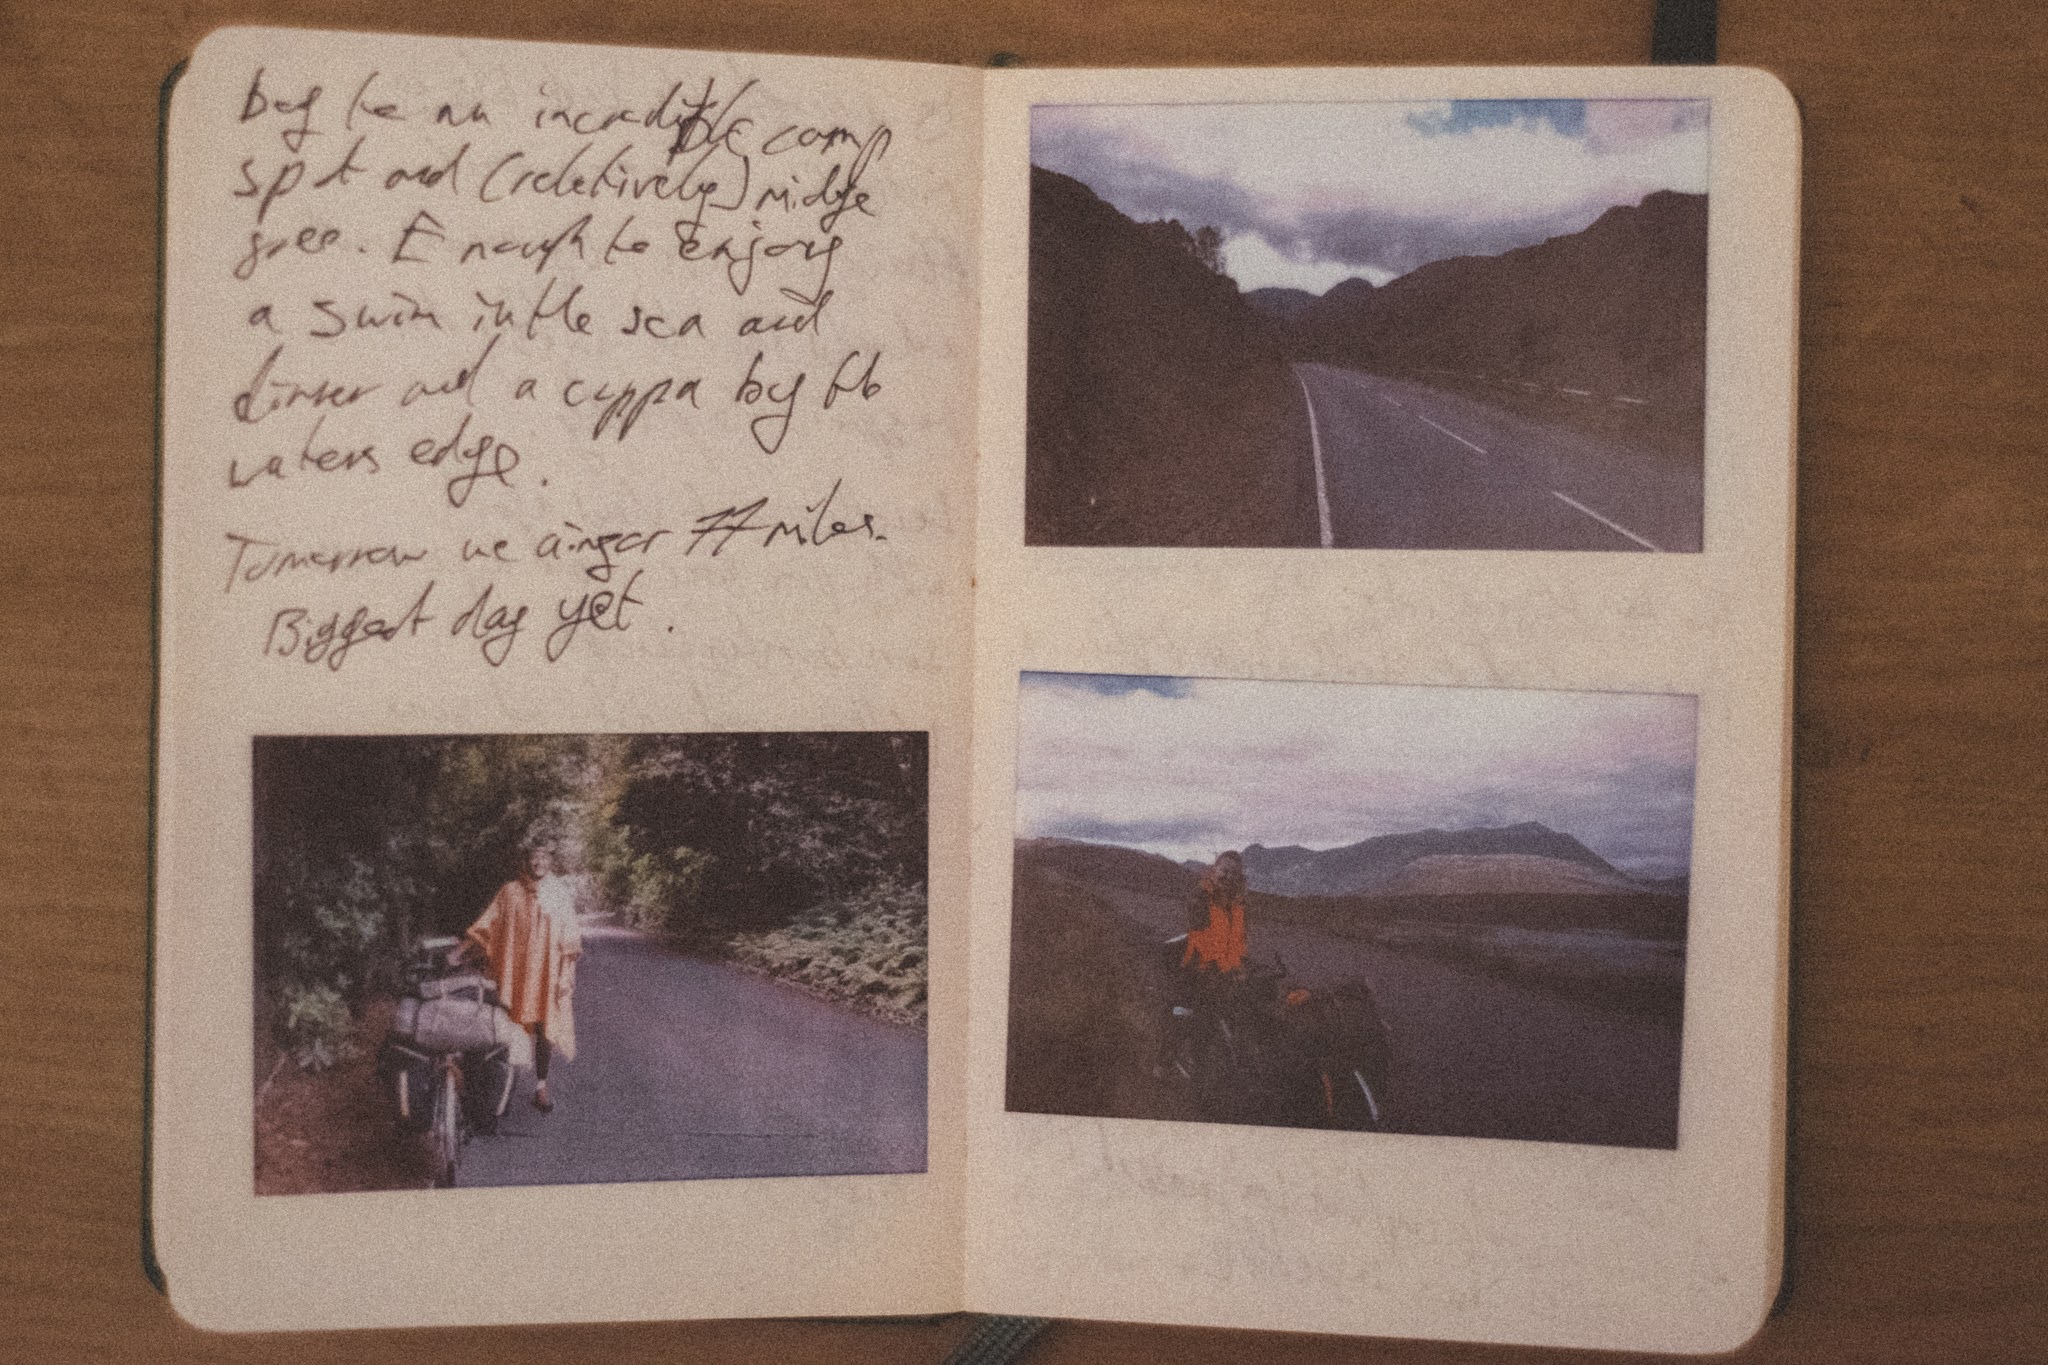 bay to an incredible camp
spot and (relatively) midge
free. Enough to enjoy
a swim in the sea and
dinner and a cuppa by the
waters edge.
Tomorrow we aim for 77 miles.
Biggest day yet.